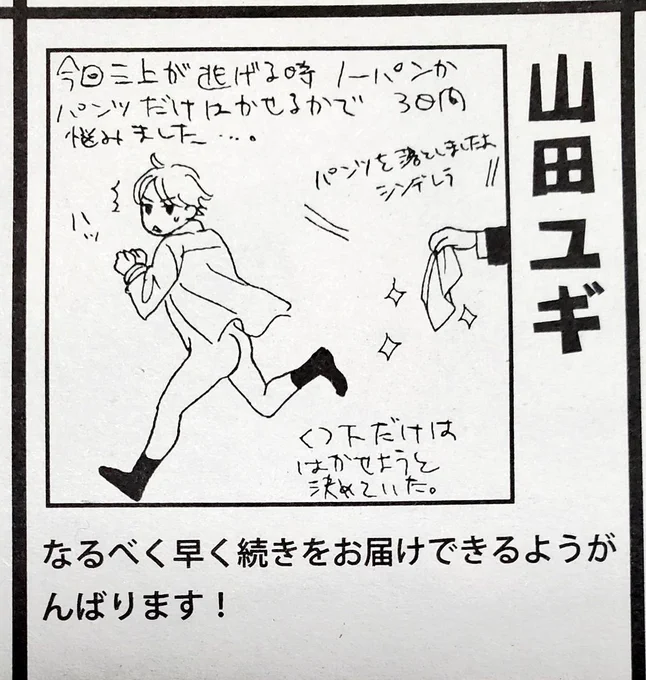 山田ユギ
今回三上が逃げる時 ノーパンか
パンツだけはかせるかで 3日間
悩みました…。
パンツを落としましたよ
シンデレラ
ハッ
くつ下だけは
はかせようと
決めていた。
なるべく早く続きをお届けできるようが
んばります！